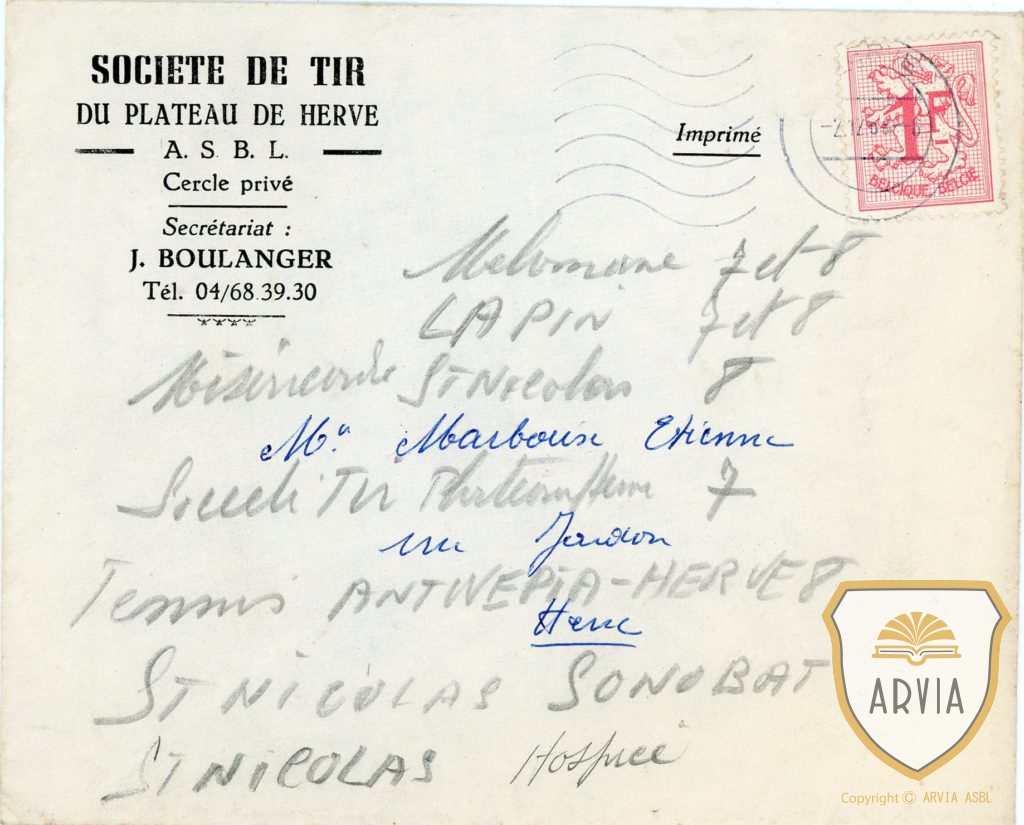 SOCIETE DE TIR
DU PLATEAU DE HERVE
A. S. B. L.
Cercle privé
Secrétariat :
J. BOULANGER
Tél. 04/68.39.30
Imprimé
1F
BELGIQUE BELGIË
Melomane 7 et 8
LAPIN 7 et 8
Miséricorde St Nicolas 8
Mr. Marbaise Etienne
Tir Plateau Herve 7
rue Jardon
Tennis ANTWEPIA-HERVE 8
Herve
ST NICOLAS SONOBAT
ST NICOLAS Hospice
ARVIA
Copyright © ARVIA ASBL